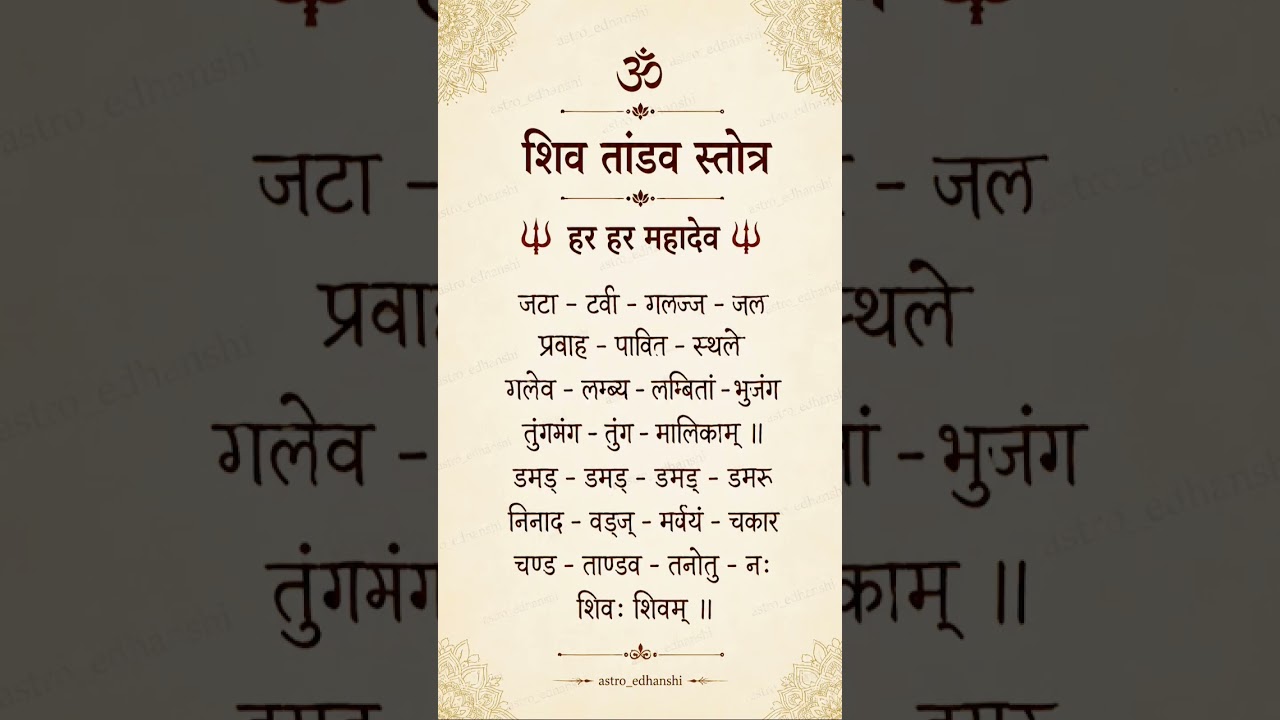 ॐ
शिव तांडव स्तोत्र
हर हर महादेव
जटा – टवी – गलज्ज – जल
प्रवाह – पावित – स्थले
गलेव – लम्ब्य – लम्बितां –भुजंग
तुंगमंग – तुंग – मालिकाम् ॥
डमड् – डमड् – डमड् – डमरू
निनाद – वड्ज् – मर्वयं – चकार
चण्ड – ताण्डव – तनोतु – नः
शिवः शिवम् ॥
astro_edhanshi